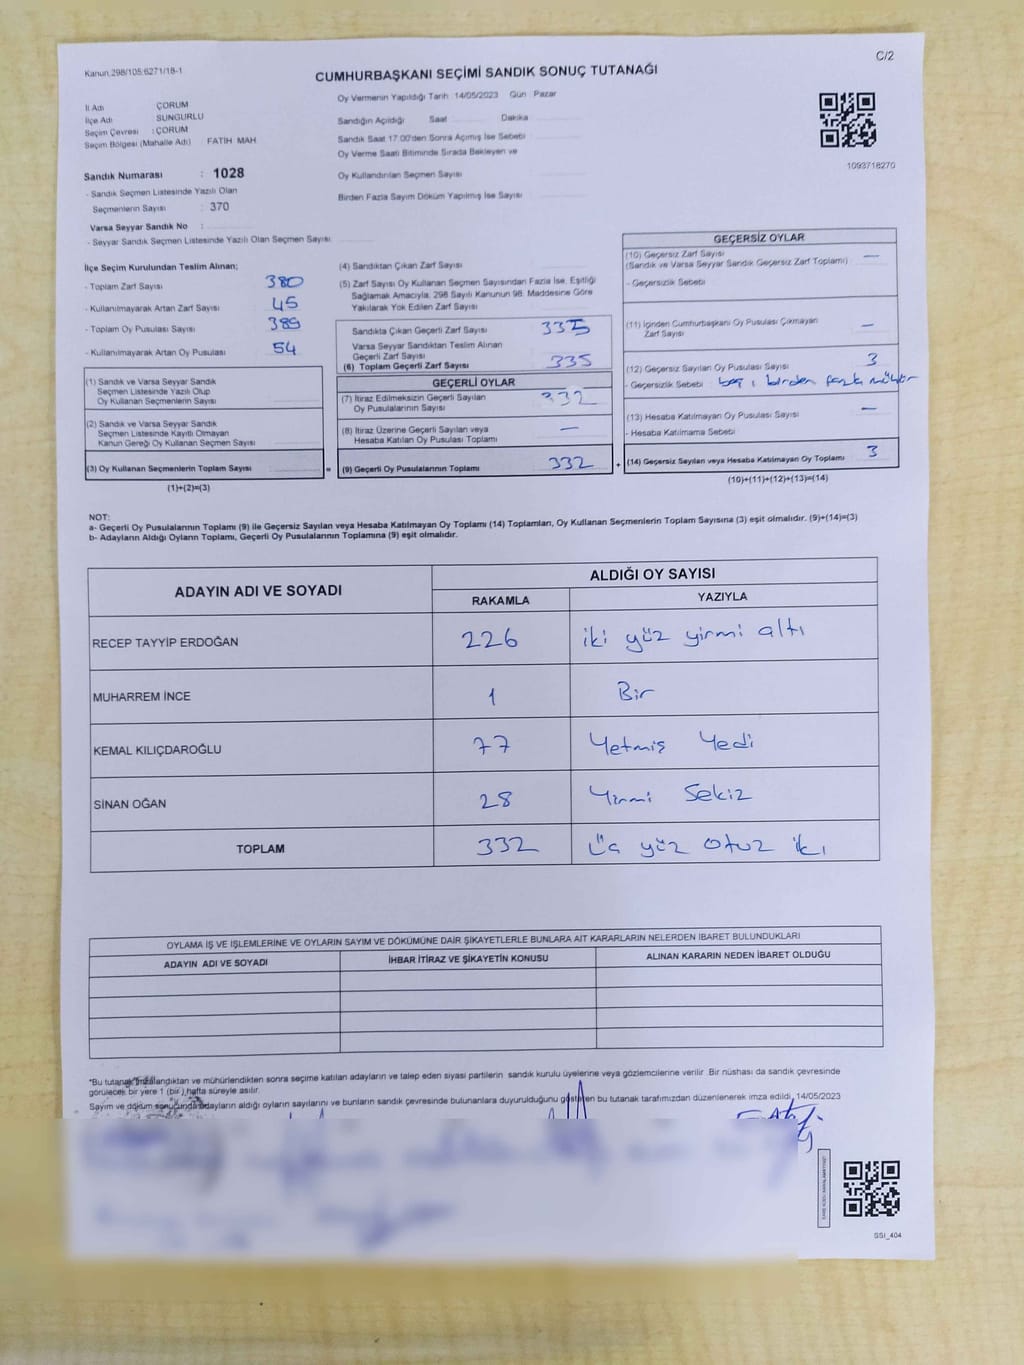 Kanun:298/105;6271/18-1
C/2
CUMHURBAŞKANI SEÇİMİ SANDIK SONUÇ TUTANAĞI
İl Adı ÇORUM
İlçe Adı SUNGURLU
Seçim Çevresi : ÇORUM
Seçim Bölgesi (Mahalle Adı) FATİH MAH
Sandık Numarası : 1028
- Sandık Seçmen Listesinde Yazılı Olan
Seçmenlerin Sayısı : 370
Varsa Seyyar Sandık No :
- Seyyar Sandık Seçmen Listesinde Yazılı Olan Seçmen Sayısı
Oy Vermenin Yapıldığı Tarih :14/05/2023 Gün Pazar
Sandığın Açıldığı Saat Dakika
Sandık Saat 17.00'den Sonra Açılmış İse Sebebi
Oy Verme Saati Bitiminde Sırada Bekleyen ve
Oy Kullandırılan Seçmen Sayısı
Birden Fazla Sayım Döküm Yapılmış İse Sayısı
1093718270
İlçe Seçim Kurulundan Teslim Alınan;
- Toplam Zarf Sayısı 380
- Kullanılmayarak Artan Zarf Sayısı 45
- Toplam Oy Pusulası Sayısı 389
- Kullanılmayarak Artan Oy Pusulası 54
(1) Sandık ve Varsa Seyyar Sandık
Seçmen Listesinde Yazılı Olup
Oy Kullanan Seçmenlerin Sayısı
(2) Sandık ve Varsa Seyyar Sandık
Seçmen Listesinde Kayıtlı Olmayan
Kanun Gereği Oy Kullanan Seçmen Sayısı
(3) Oy Kullanan Seçmenlerin Toplam Sayısı =
(1)+(2)=(3)
(4) Sandıktan Çıkan Zarf Sayısı
(5) Zarf Sayısı Oy Kullanan Seçmen Sayısından Fazla İse, Eşitliği
Sağlamak Amacıyla; 298 Sayılı Kanunun 98. Maddesine Göre
Yakılarak Yok Edilen Zarf Sayısı
Sandıkta Çıkan Geçerli Zarf Sayısı 335
Varsa Seyyar Sandıktan Teslim Alınan
Geçerli Zarf Sayısı
(6) Toplam Geçerli Zarf Sayısı 335
GEÇERLİ OYLAR
(7) İtiraz Edilmeksizin Geçerli Sayılan
Oy Pusulalarının Sayısı 332
(8) İtiraz Üzerine Geçerli Sayılan veya
Hesaba Katılan Oy Pusulası Toplamı —
(9) Geçerli Oy Pusulalarının Toplamı 332 +
GEÇERSİZ OYLAR
(10) Geçersiz Zarf Sayısı —
(Sandık ve Varsa Seyyar Sandık Geçersiz Zarf Toplamı)
- Geçersizlik Sebebi
(11) İçinden Cumhurbaşkanı Oy Pusulası Çıkmayan
Zarf Sayısı —
(12) Geçersiz Sayılan Oy Pusulası Sayısı 3
- Geçersizlik Sebebi boş, birden fazla mühür
(13) Hesaba Katılmayan Oy Pusulası Sayısı —
- Hesaba Katılmama Sebebi
(14) Geçersiz Sayılan veya Hesaba Katılmayan Oy Toplamı 3
(10)+(11)+(12)+(13)=(14)
NOT:
a- Geçerli Oy Pusulalarının Toplamı (9) ile Geçersiz Sayılan veya Hesaba Katılmayan Oy Toplamı (14) Toplamları, Oy Kullanan Seçmenlerin Toplam Sayısına (3) eşit olmalıdır. (9)+(14)=(3)
b- Adayların Aldığı Oyların Toplamı, Geçerli Oy Pusulalarının Toplamına (9) eşit olmalıdır.
ADAYIN ADI VE SOYADI ALDIĞI OY SAYISI
RAKAMLA YAZIYLA
RECEP TAYYİP ERDOĞAN 226 iki yüz yirmi altı
MUHARREM İNCE 1 Bir
KEMAL KILIÇDAROĞLU 77 Yetmiş Yedi
SİNAN OĞAN 28 Yirmi Sekiz
TOPLAM 332 Üç yüz otuz iki
OYLAMA İŞ VE İŞLEMLERİNE VE OYLARIN SAYIM VE DÖKÜMÜNE DAİR ŞİKAYETLERLE BUNLARA AİT KARARLARIN NELERDEN İBARET BULUNDUKLARI
ADAYIN ADI VE SOYADI İHBAR İTİRAZ VE ŞİKAYETİN KONUSU ALINAN KARARIN NEDEN İBARET OLDUĞU
*Bu tutanak imzalandıktan ve mühürlendikten sonra seçime katılan adayların ve talep eden siyasi partilerin sandık kurulu üyelerine veya gözlemcilerine verilir .Bir nüshası da sandık çevresinde
görülecek bir yere 1 (bir) hafta süreyle asılır.
Sayım ve döküm sonucunda adayların aldığı oyların sayılarını ve bunların sandık çevresinde bulunanlara duyurulduğunu gösteren bu tutanak tarafımızdan düzenlenerek imza edildi. 14/05/2023
SSİ_404